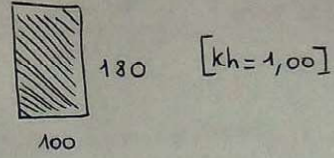 180 [kh = 1,00]
100